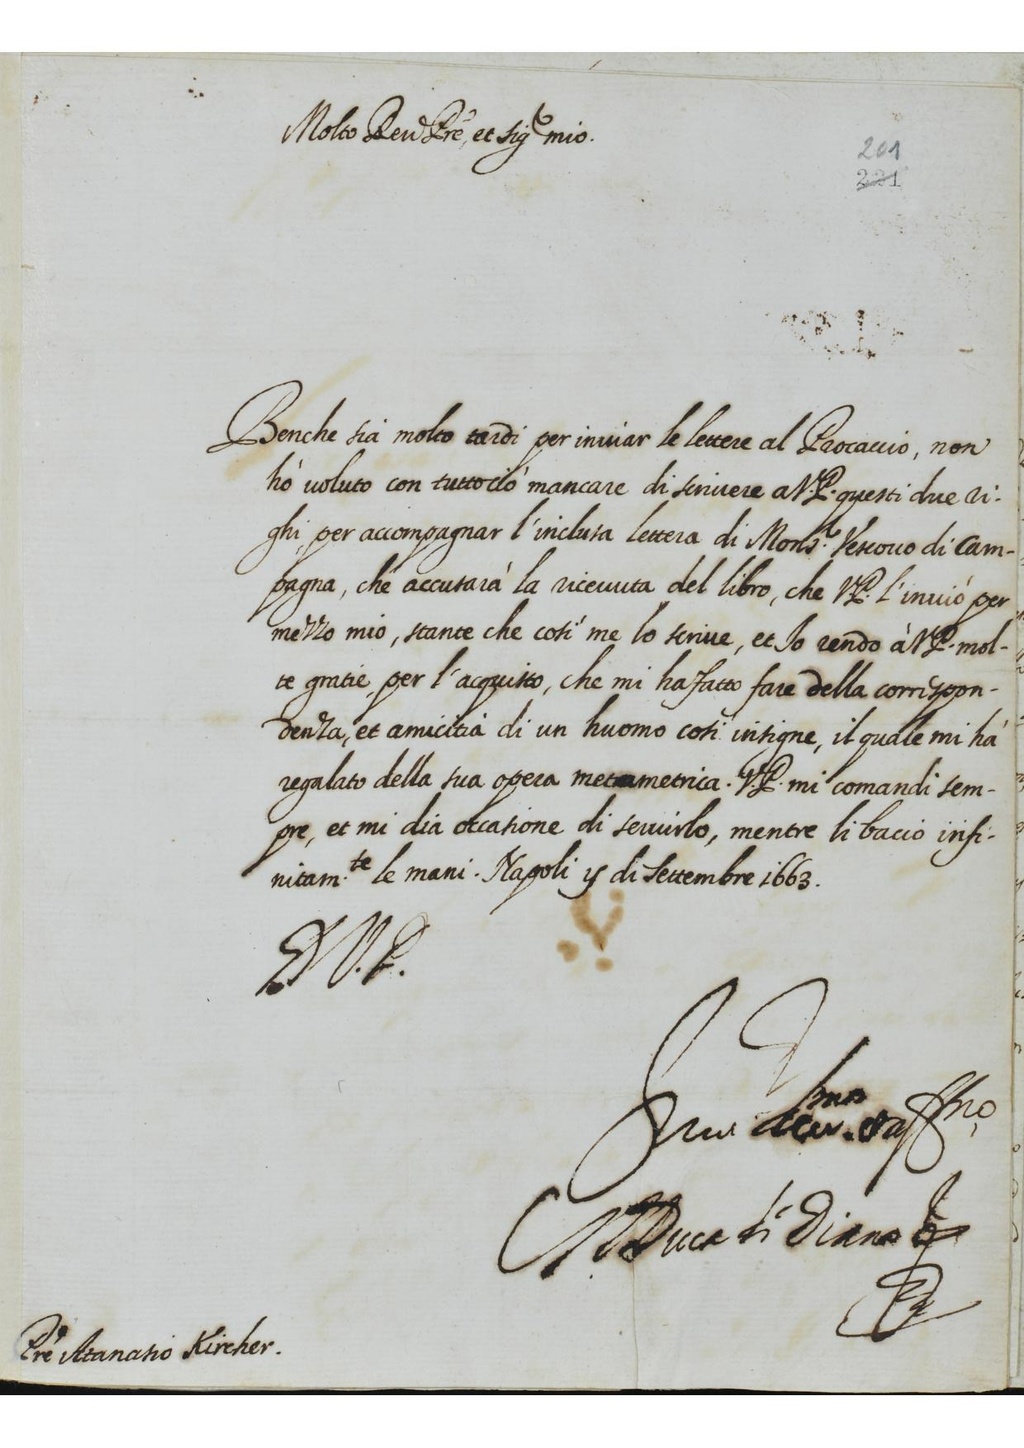 Molto Reu.do Pre, et sig.r mio.
201
221
Benche sia molto tardi per inuiar le lettere al Procaccio, non
hò uoluto con tuttociò mancare di scriuere a V.P. questi due ri-
ghi, per accompagnar l'inclusa lettera di Mons.r Vescouo di Cam-
pagna, che accusarà la riceuuta del libro, che V.P. l'inuiò per
mezzo mio, stante che così me lo scriue, et Io rendo à V.P. mol-
te gratie, per l'acquisto, che mi ha fatto fare della corrispon-
denza, et amicitia di un huomo così insigne, il quale mi hà
regalato della sua opera metametrica. V.P. mi comandi sem-
pre, et mi dia occasione di seruirlo, mentre li bacio infi-
nitam.te le mani. Napoli di Settembre 1663.
D V.P.
Ser.re aff.mo
Il Duca di Diano
Pre Atanasio Kircher.